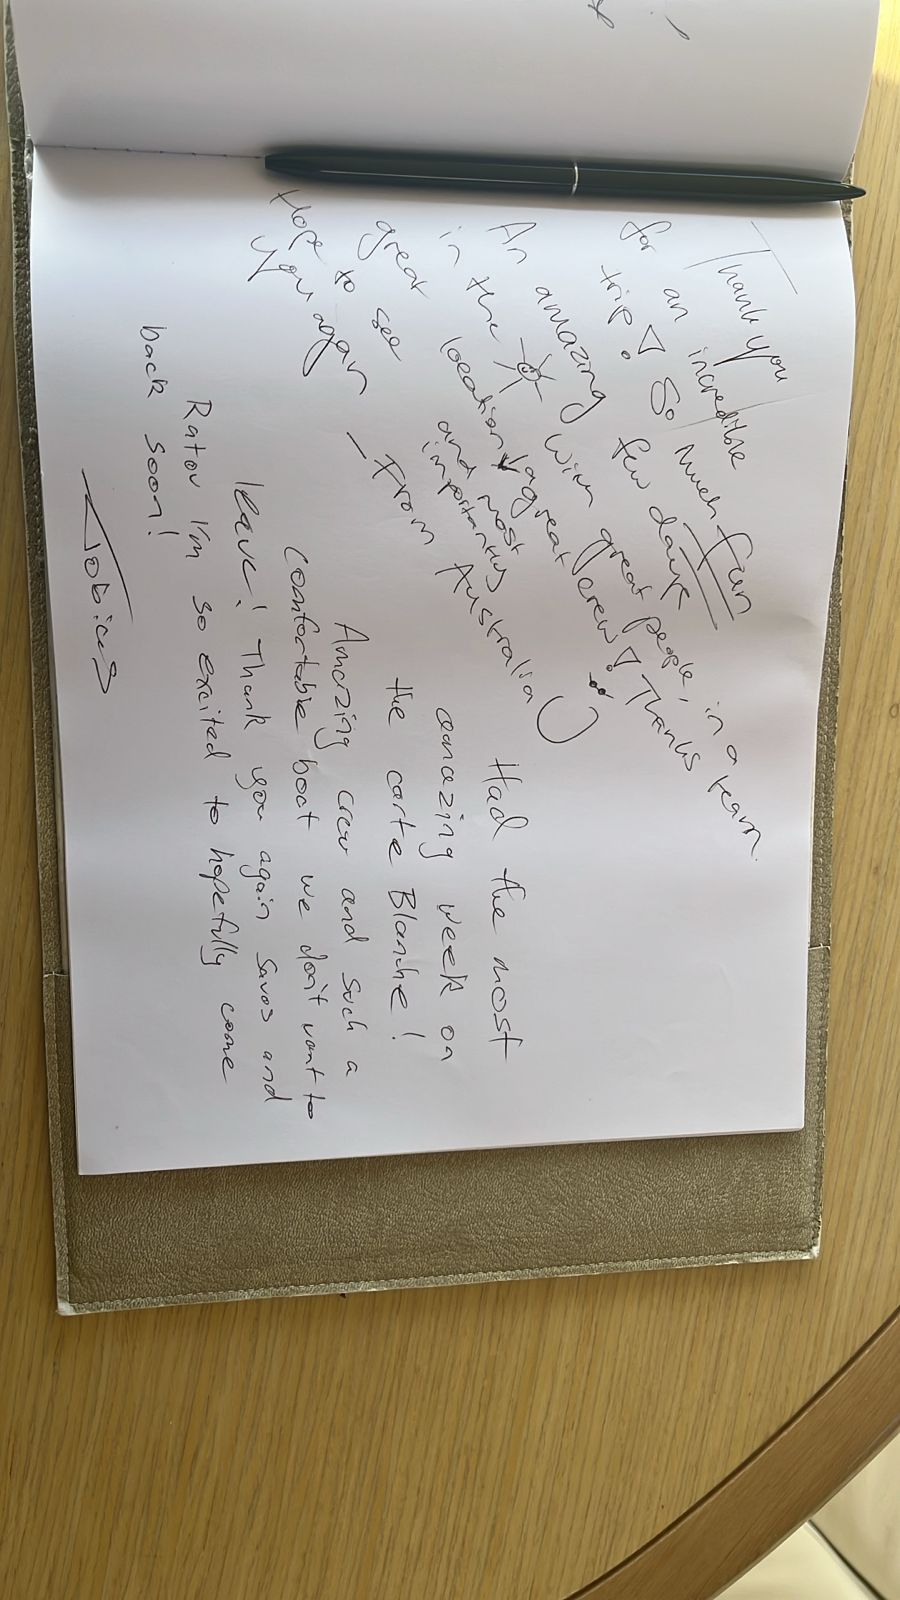 Thank you
for an incredible
trip! So much fun
An amazing few days
in the with great people, in a
great location, a great crew! Thanks
and most
importantly
Hope to see
you again
- From Australia
Had the most
amazing week on
the carte Blanche!
Amazing crew and such a
comfortable boat we don't want to
leave! Thank you again Savos and
Ratou I'm so excited to hopefully come
back soon!